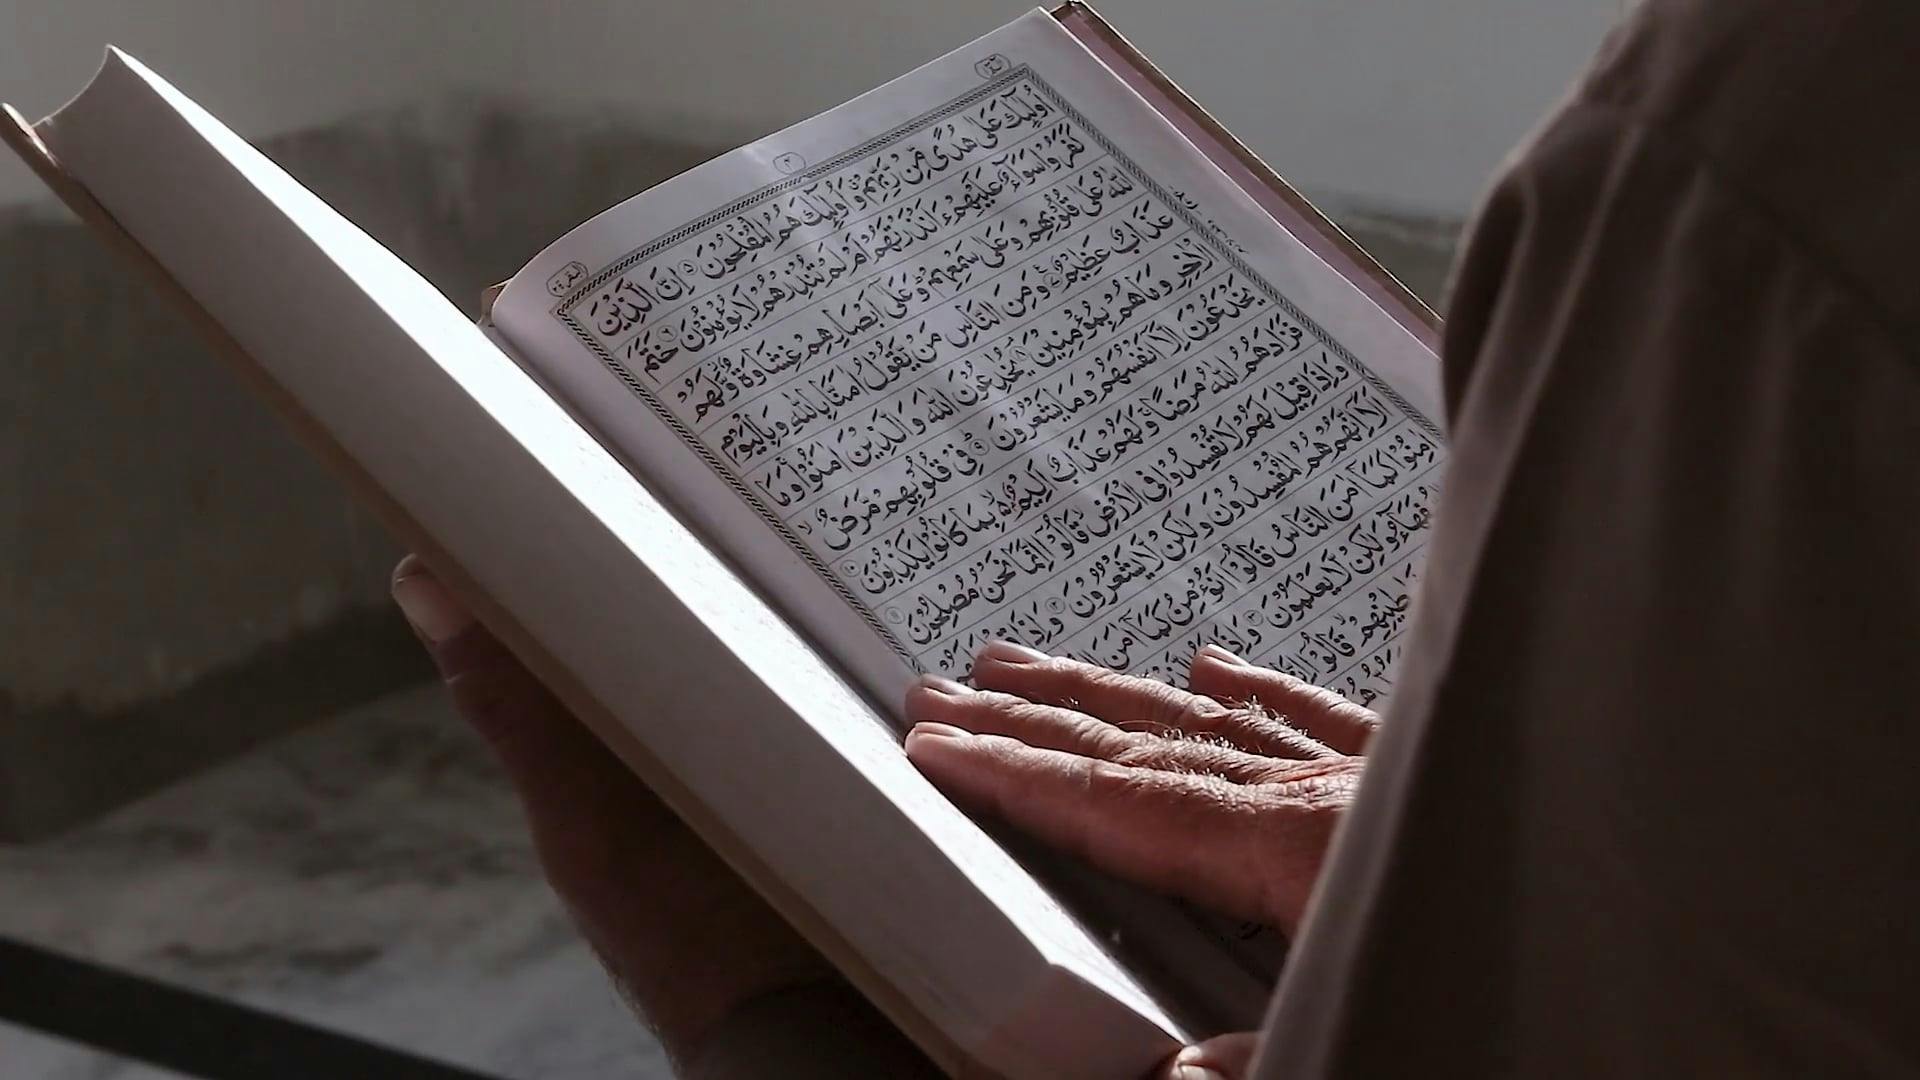 البقرة ٢
٣
الم ١
أُولٰٓئِكَ عَلٰى هُدًى مِّنْ رَّبِّهِمْ ۗ وَأُولٰٓئِكَ هُمُ الْمُفْلِحُوْنَ ٥ اِنَّ الَّذِيْنَ
كَفَرُوْا سَوَآءٌ عَلَيْهِمْ ءَاَنْذَرْتَهُمْ اَمْ لَمْ تُنْذِرْهُمْ لَا يُؤْمِنُوْنَ ٦ خَتَمَ
اللّٰهُ عَلٰى قُلُوْبِهِمْ وَعَلٰى سَمْعِهِمْ ۗ وَعَلٰٓى اَبْصَارِهِمْ غِشَاوَةٌ ۖ وَّلَهُمْ
عَذَابٌ عَظِيْمٌ ٧ وَمِنَ النَّاسِ مَنْ يَّقُوْلُ اٰمَنَّا بِاللّٰهِ وَبِالْيَوْمِ
الْاٰخِرِ وَمَا هُمْ بِمُؤْمِنِيْنَ ٨ يُخٰدِعُوْنَ اللّٰهَ وَالَّذِيْنَ اٰمَنُوْا ۚ وَمَا
يَخْدَعُوْنَ اِلَّآ اَنْفُسَهُمْ وَمَا يَشْعُرُوْنَ ٩ فِيْ قُلُوْبِهِمْ مَّرَضٌ ۙ
فَزَادَهُمُ اللّٰهُ مَرَضًا ۚ وَلَهُمْ عَذَابٌ اَلِيْمٌ ۢ ۙ بِمَا كَانُوْا يَكْذِبُوْنَ ١٠
وَاِذَا قِيْلَ لَهُمْ لَا تُفْسِدُوْا فِى الْاَرْضِ ۙ قَالُوْٓا اِنَّمَا نَحْنُ مُصْلِحُوْنَ ١١
اَلَآ اِنَّهُمْ هُمُ الْمُفْسِدُوْنَ وَلٰكِنْ لَّا يَشْعُرُوْنَ ١٢ وَاِذَا
اٰمِنُوْا كَمَآ اٰمَنَ النَّاسُ قَالُوْٓا اَنُؤْمِنُ كَمَآ اٰمَنَ
وَلٰكِنْ لَّا يَعْلَمُوْنَ ١٣ وَاِذَا
قَالُوْٓا